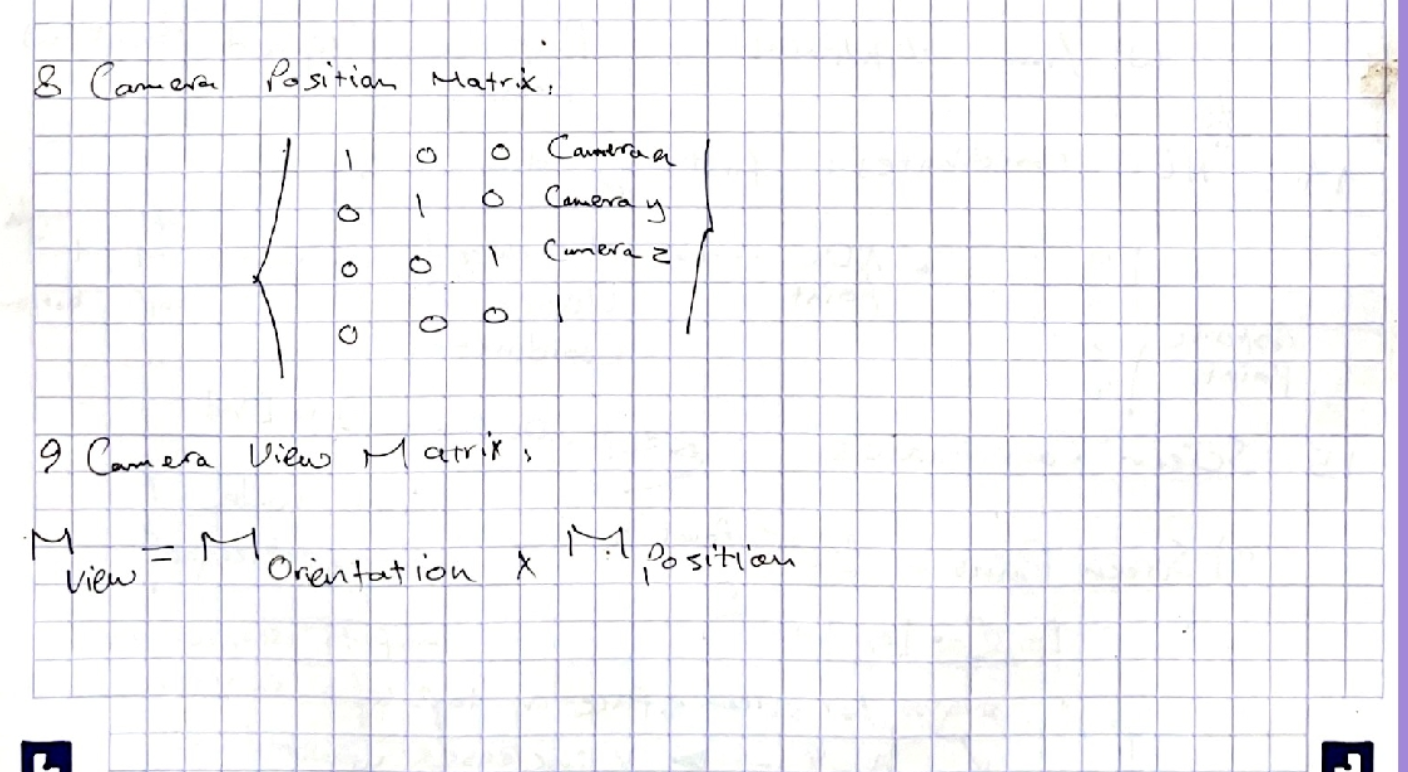 8 Camera Position Matrix,
1 0 0 Camera x
0 1 0 Camera y
0 0 1 Camera z
0 0 0 1
9 Camera View Matrix,
M View = M Orientation x M Position